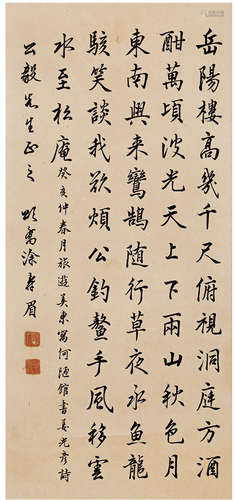 岳陽樓高幾千尺俯視洞庭方酒
酣萬頃波光天上下兩山秋色月
東南興来鸞鵠随行草夜永魚龍
駭笑談我欲煩公釣鼇手風移雲
水至松庵 癸亥仲春月旅遊美東寓何陋館書姜光彦詩
公毅先生正之 時寓涂壽眉